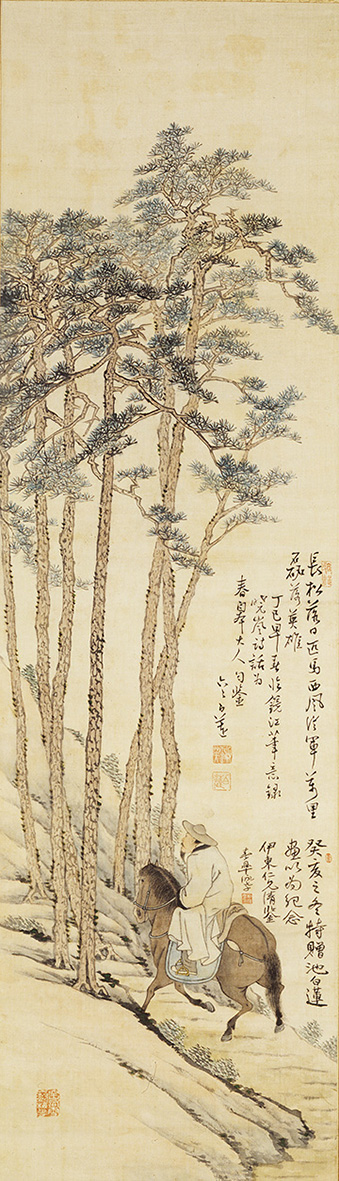 長松落日匹馬西風從軍萬里
落英雄
丁巳早春臨鏡江筆意錄
詩話為
春皐大人勻鑒
白蓮
癸亥之冬特贈池白蓮
畫以為紀念
伊東仁兄清鑒
春皐泳孝